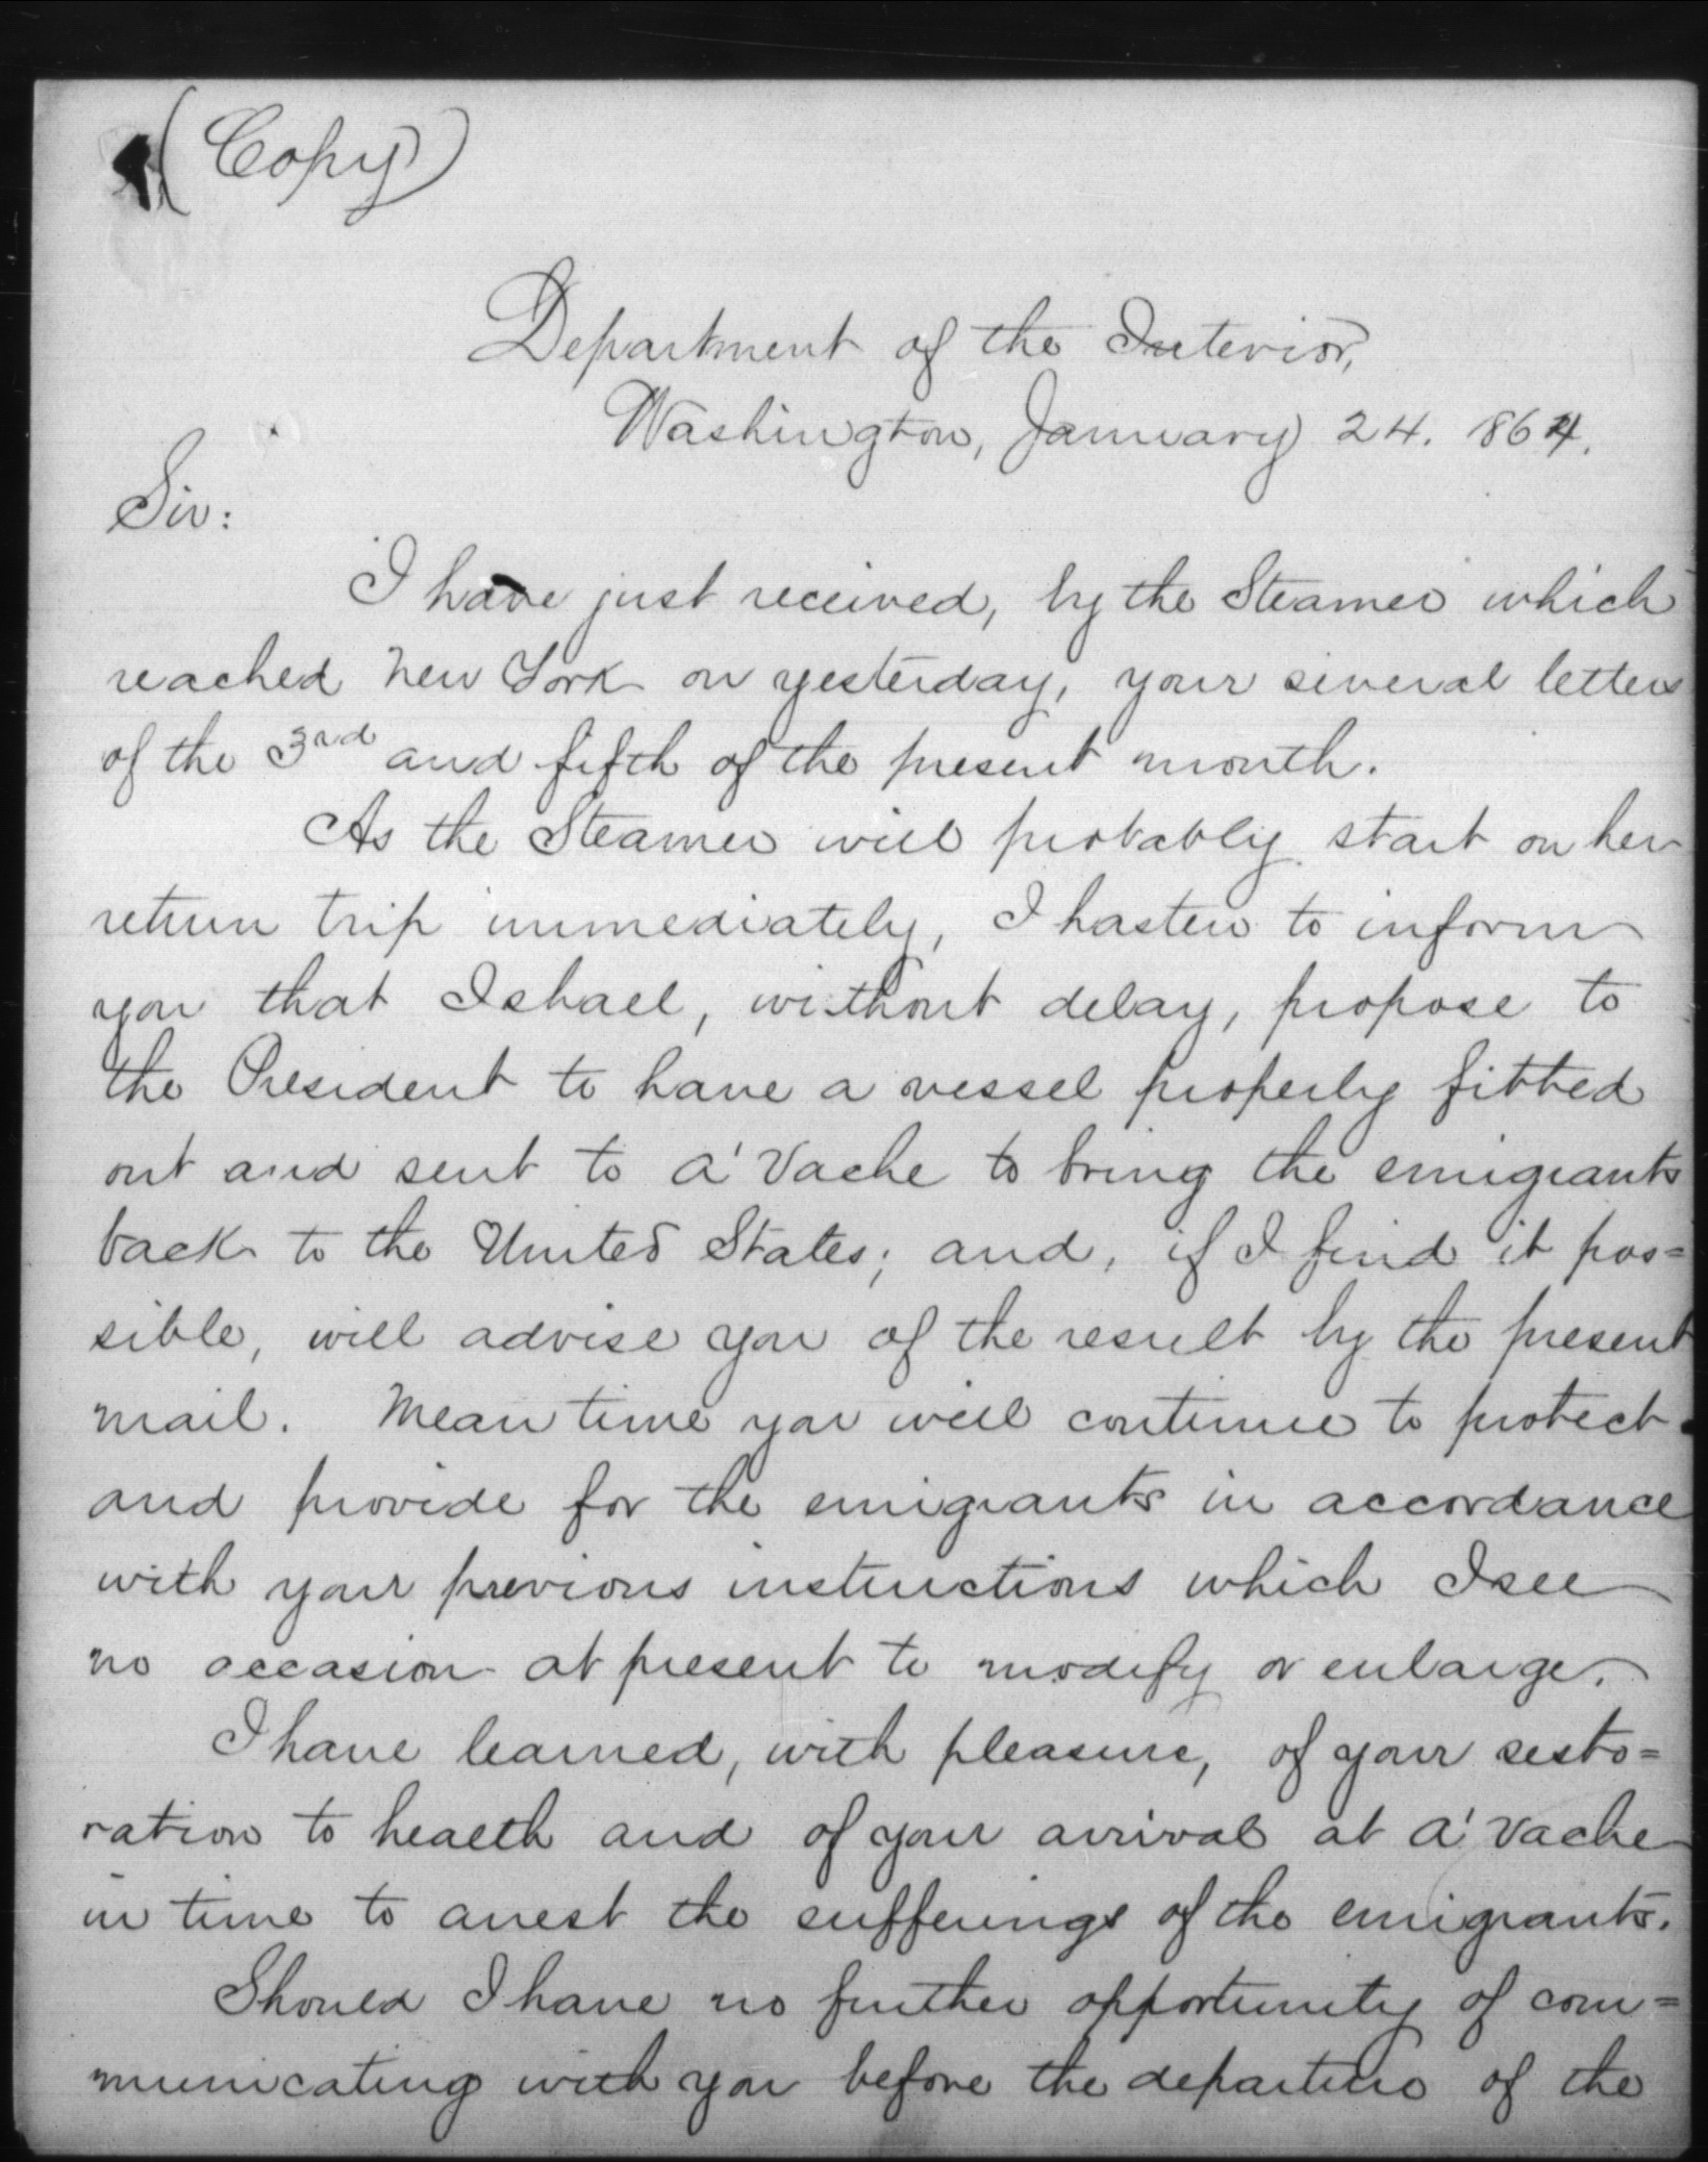 (Copy)
Department of the Interior,
Washington, January 24. 1864.
Sir:
I have just received, by the Steamer which
reached New York on yesterday, your several letters
of the 3rd and fifth of the present month.
As the Steamer will probably start on her
return trip immediately, I hasten to inform
you that I shall, without delay, propose to
the President to have a vessel properly fitted
out and sent to A'Vache to bring the emigrants
back to the United States; and, if I find it pos=
sible, will advise you of the result by the present
mail. Mean time you will continue to protect
and provide for the emigrants in accordance
with your previous instructions which I see
no occasion at present to modify or enlarge.
I have learned, with pleasure, of your resto=
ration to health and of your arrival at A'Vache
in time to arrest the sufferings of the emigrants.
Should I have no further opportunity of com=
municating with you before the departure of the